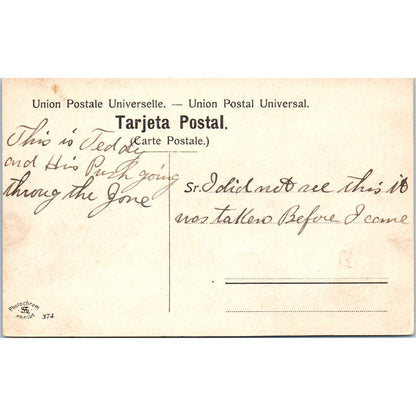 Union Postale Universelle. — Union Postal Universal.
Tarjeta Postal.
(Carte Postale.)
This is Teddy
and His Push going
throug the Zone
Sr. I did not see this it
was taken Before I came
Photochrom
374